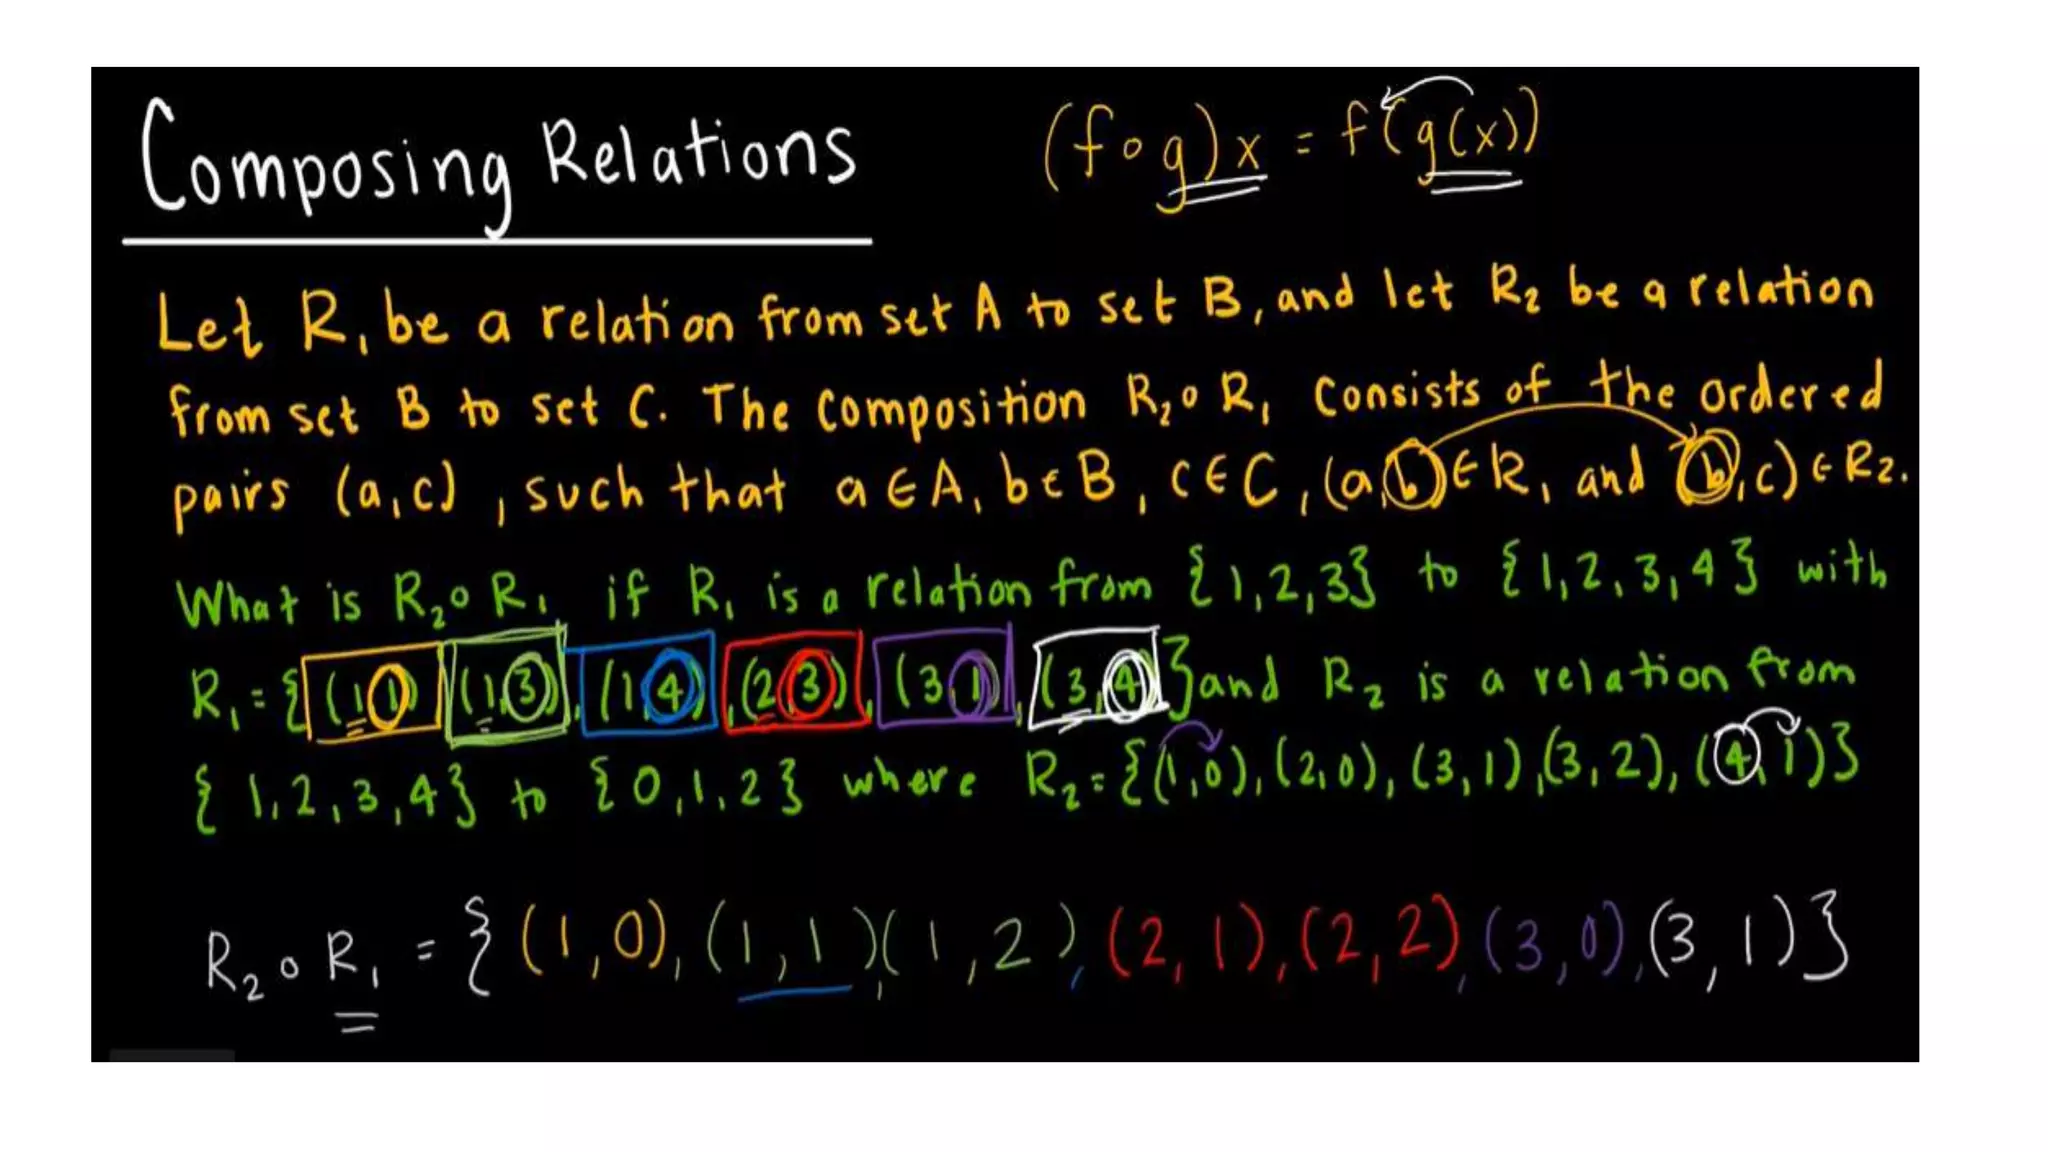 Composing Relations
(f∘g)x = f(g(x))
Let R₁ be a relation from set A to set B, and let R₂ be a relation
from set B to set C. The composition R₂∘R₁ consists of the ordered
pairs (a,c), such that a∈A, b∈B, c∈C, (a,b)∈R₁ and (b,c)∈R₂.
What is R₂∘R₁ if R₁ is a relation from {1,2,3} to {1,2,3,4} with
R₁={(1,1),(1,3),(1,4),(2,3),(3,1),(3,4)} and R₂ is a relation from
{1,2,3,4} to {0,1,2} where R₂={(1,0),(2,0),(3,1),(3,2),(4,1)}
R₂∘R₁ = {(1,0),(1,1),(1,2),(2,1),(2,2),(3,0),(3,1)}